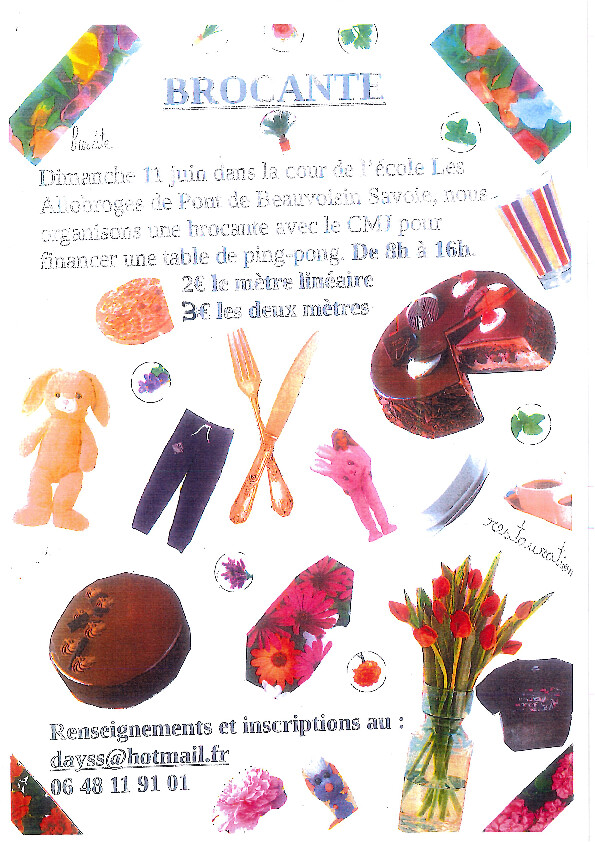 BROCANTE
buvette
Dimanche 11 juin dans la cour de l'école Les
Allobroges de Pont de Beauvoisin Savoie, nous
organisons une brocante avec le CMJ pour
financer une table de ping-pong. De 8h à 16h.
2€ le mètre linéaire
3€ les deux mètres
restauration
Renseignements et inscriptions au :
dayss@hotmail.fr
06 48 11 91 01